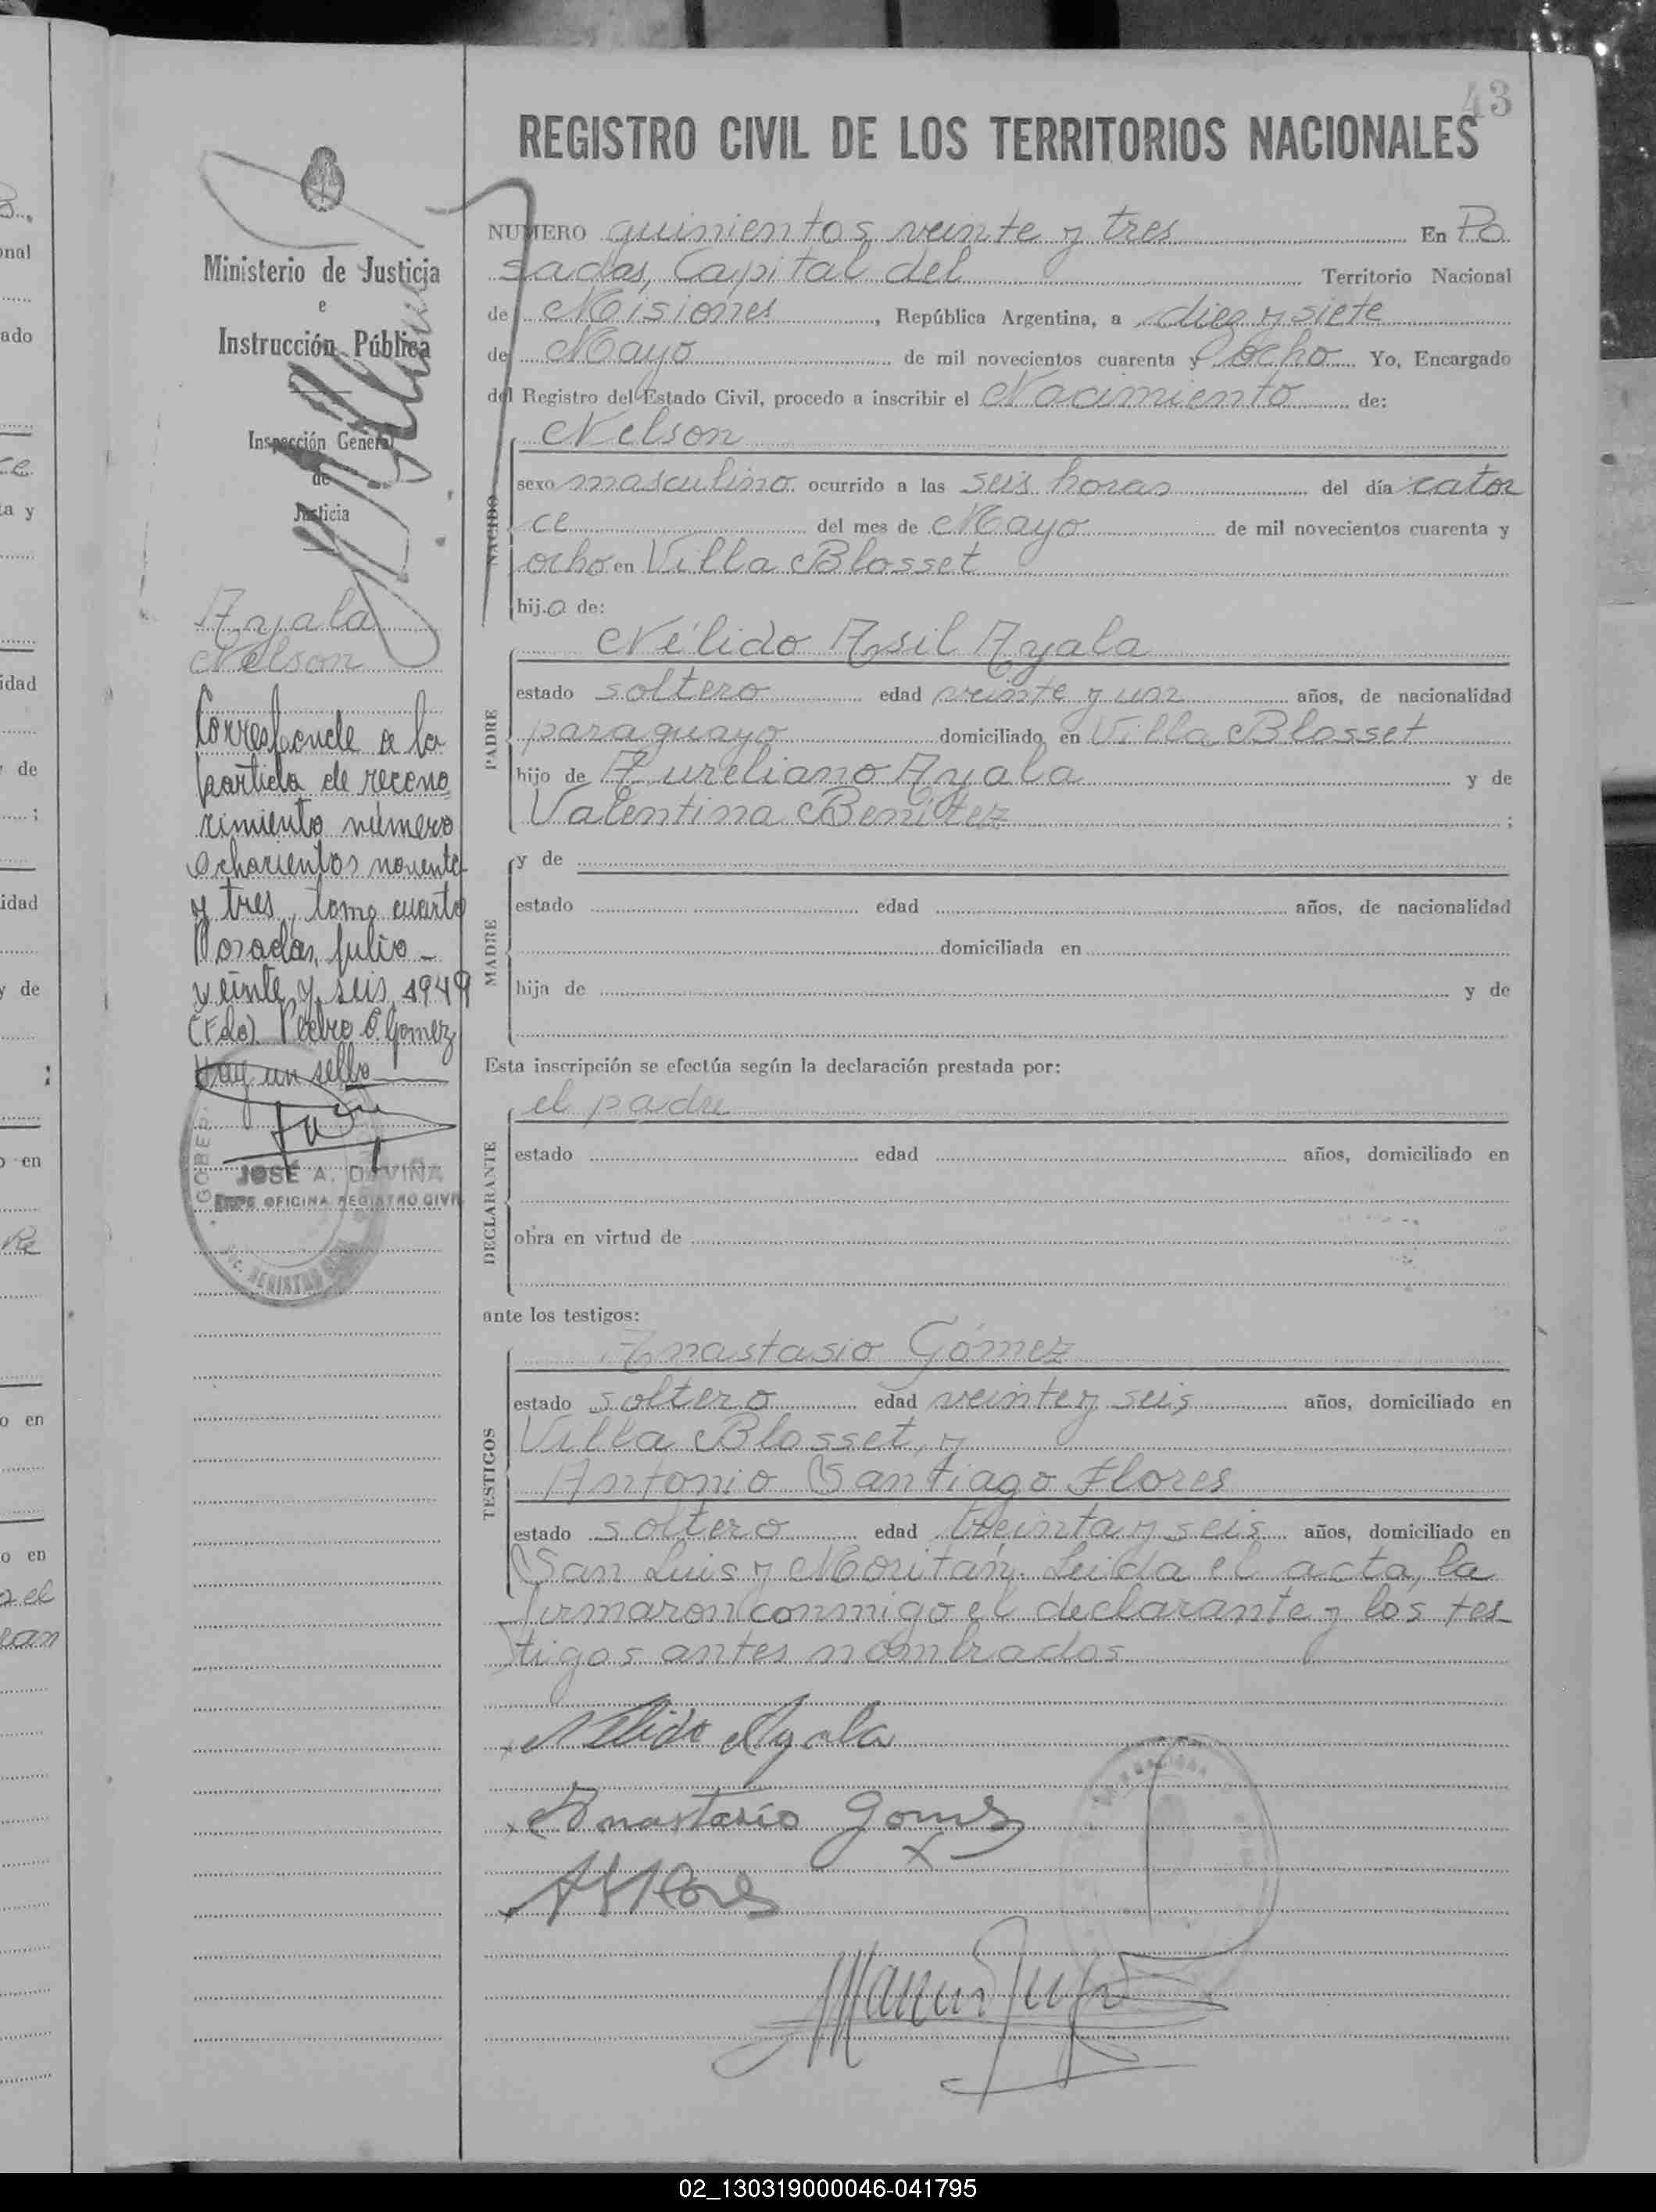 43
REGISTRO CIVIL DE LOS TERRITORIOS NACIONALES
Ministerio de Justicia
e
Instrucción Pública
Inspección General
de
Justicia
Ayala
Nelson
Corresponde a la
partida de recono
cimiento número
ochocientos noventa
y tres, tomo cuarto
Posadas, julio
veinte y seis 1949
(Fdo). Pedro G. Gomez
Hay un sello
JOSÉ A. DA VIÑA
JEFE OFICINA REGISTRO CIVIL
NUMERO quinientos veinte y tres En Po
sadas, Capital del Territorio Nacional
de Misiones, República Argentina, a diez y siete
de Mayo de mil novecientos cuarenta y Ocho Yo, Encargado
del Registro del Estado Civil, procedo a inscribir el Nacimiento de:
NACIDO
Nelson
sexo masculino ocurrido a las seis horas del día cator
ce del mes de Mayo de mil novecientos cuarenta y
ocho en Villa Blosset
hijo de:
PADRE
Nélido Asil Ayala
estado soltero edad veinte y uno años, de nacionalidad
paraguayo domiciliado en Villa Blosset
hijo de Aureliano Ayala y de
Valentina Benítez ;
MADRE
y de
estado edad años, de nacionalidad
domiciliada en
hija de y de
Esta inscripción se efectúa según la declaración prestada por:
DECLARANTE
el padre
estado edad años, domiciliado en
obra en virtud de
ante los testigos:
TESTIGOS
Anastasio Gómez
estado soltero edad veinte y seis años, domiciliado en
Villa Blosset, y
Antonio Santiago Flores
estado soltero edad treinta y seis años, domiciliado en
San Luis y Moritán. Leida el acta, la
firmaron conmigo el declarante y los tes-
tigos antes nombrados
Nelido Ayala
Anastasio Gomez
ASFlores
02_130319000046-041795